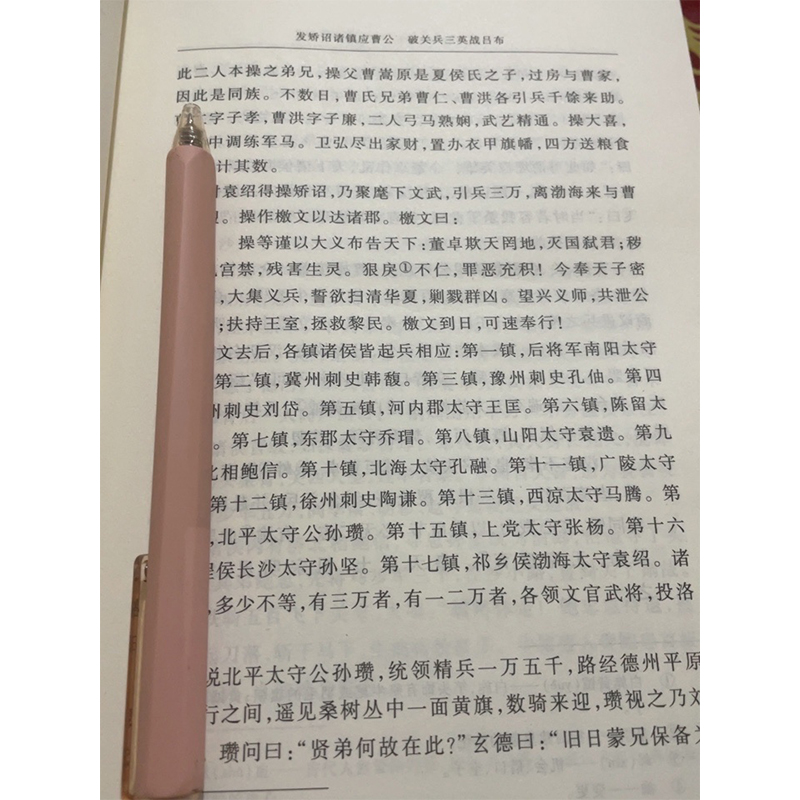 发矫诏诸镇应曹公 破关兵三英战吕布
此二人本操之弟兄,操父曹嵩原是夏侯氏之子,过房与曹家,
因此是同族。不数日,曹氏兄弟曹仁、曹洪各引兵千馀来助。
字子孝,曹洪字子廉,二人弓马熟娴,武艺精通。操大喜,
中调练军马。卫弘尽出家财,置办衣甲旗幡,四方送粮食
计其数。
袁绍得操矫诏,乃聚麾下文武,引兵三万,离渤海来与曹
。操作檄文以达诸郡。檄文曰:
操等谨以大义布告天下:董卓欺天罔地,灭国弑君;秽
宫禁,残害生灵。狠戾①不仁,罪恶充积!今奉天子密
,大集义兵,誓欲扫清华夏,剿戮群凶。望兴义师,共泄公
;扶持王室,拯救黎民。檄文到日,可速奉行!
文去后,各镇诸侯皆起兵相应:第一镇,后将军南阳太守
第二镇,冀州刺史韩馥。第三镇,豫州刺史孔伷。第四
州刺史刘岱。第五镇,河内郡太守王匡。第六镇,陈留太
。第七镇,东郡太守乔瑁。第八镇,山阳太守袁遗。第九
北相鲍信。第十镇,北海太守孔融。第十一镇,广陵太守
第十二镇,徐州刺史陶谦。第十三镇,西凉太守马腾。第
,北平太守公孙瓒。第十五镇,上党太守张杨。第十六
程侯长沙太守孙坚。第十七镇,祁乡侯渤海太守袁绍。诸
,多少不等,有三万者,有一二万者,各领文官武将,投洛
说北平太守公孙瓒,统领精兵一万五千,路经德州平原
行之间,遥见桑树丛中一面黄旗,数骑来迎,瓒视之乃
瓒问曰:“贤弟何故在此?”玄德曰:“旧日蒙兄保备